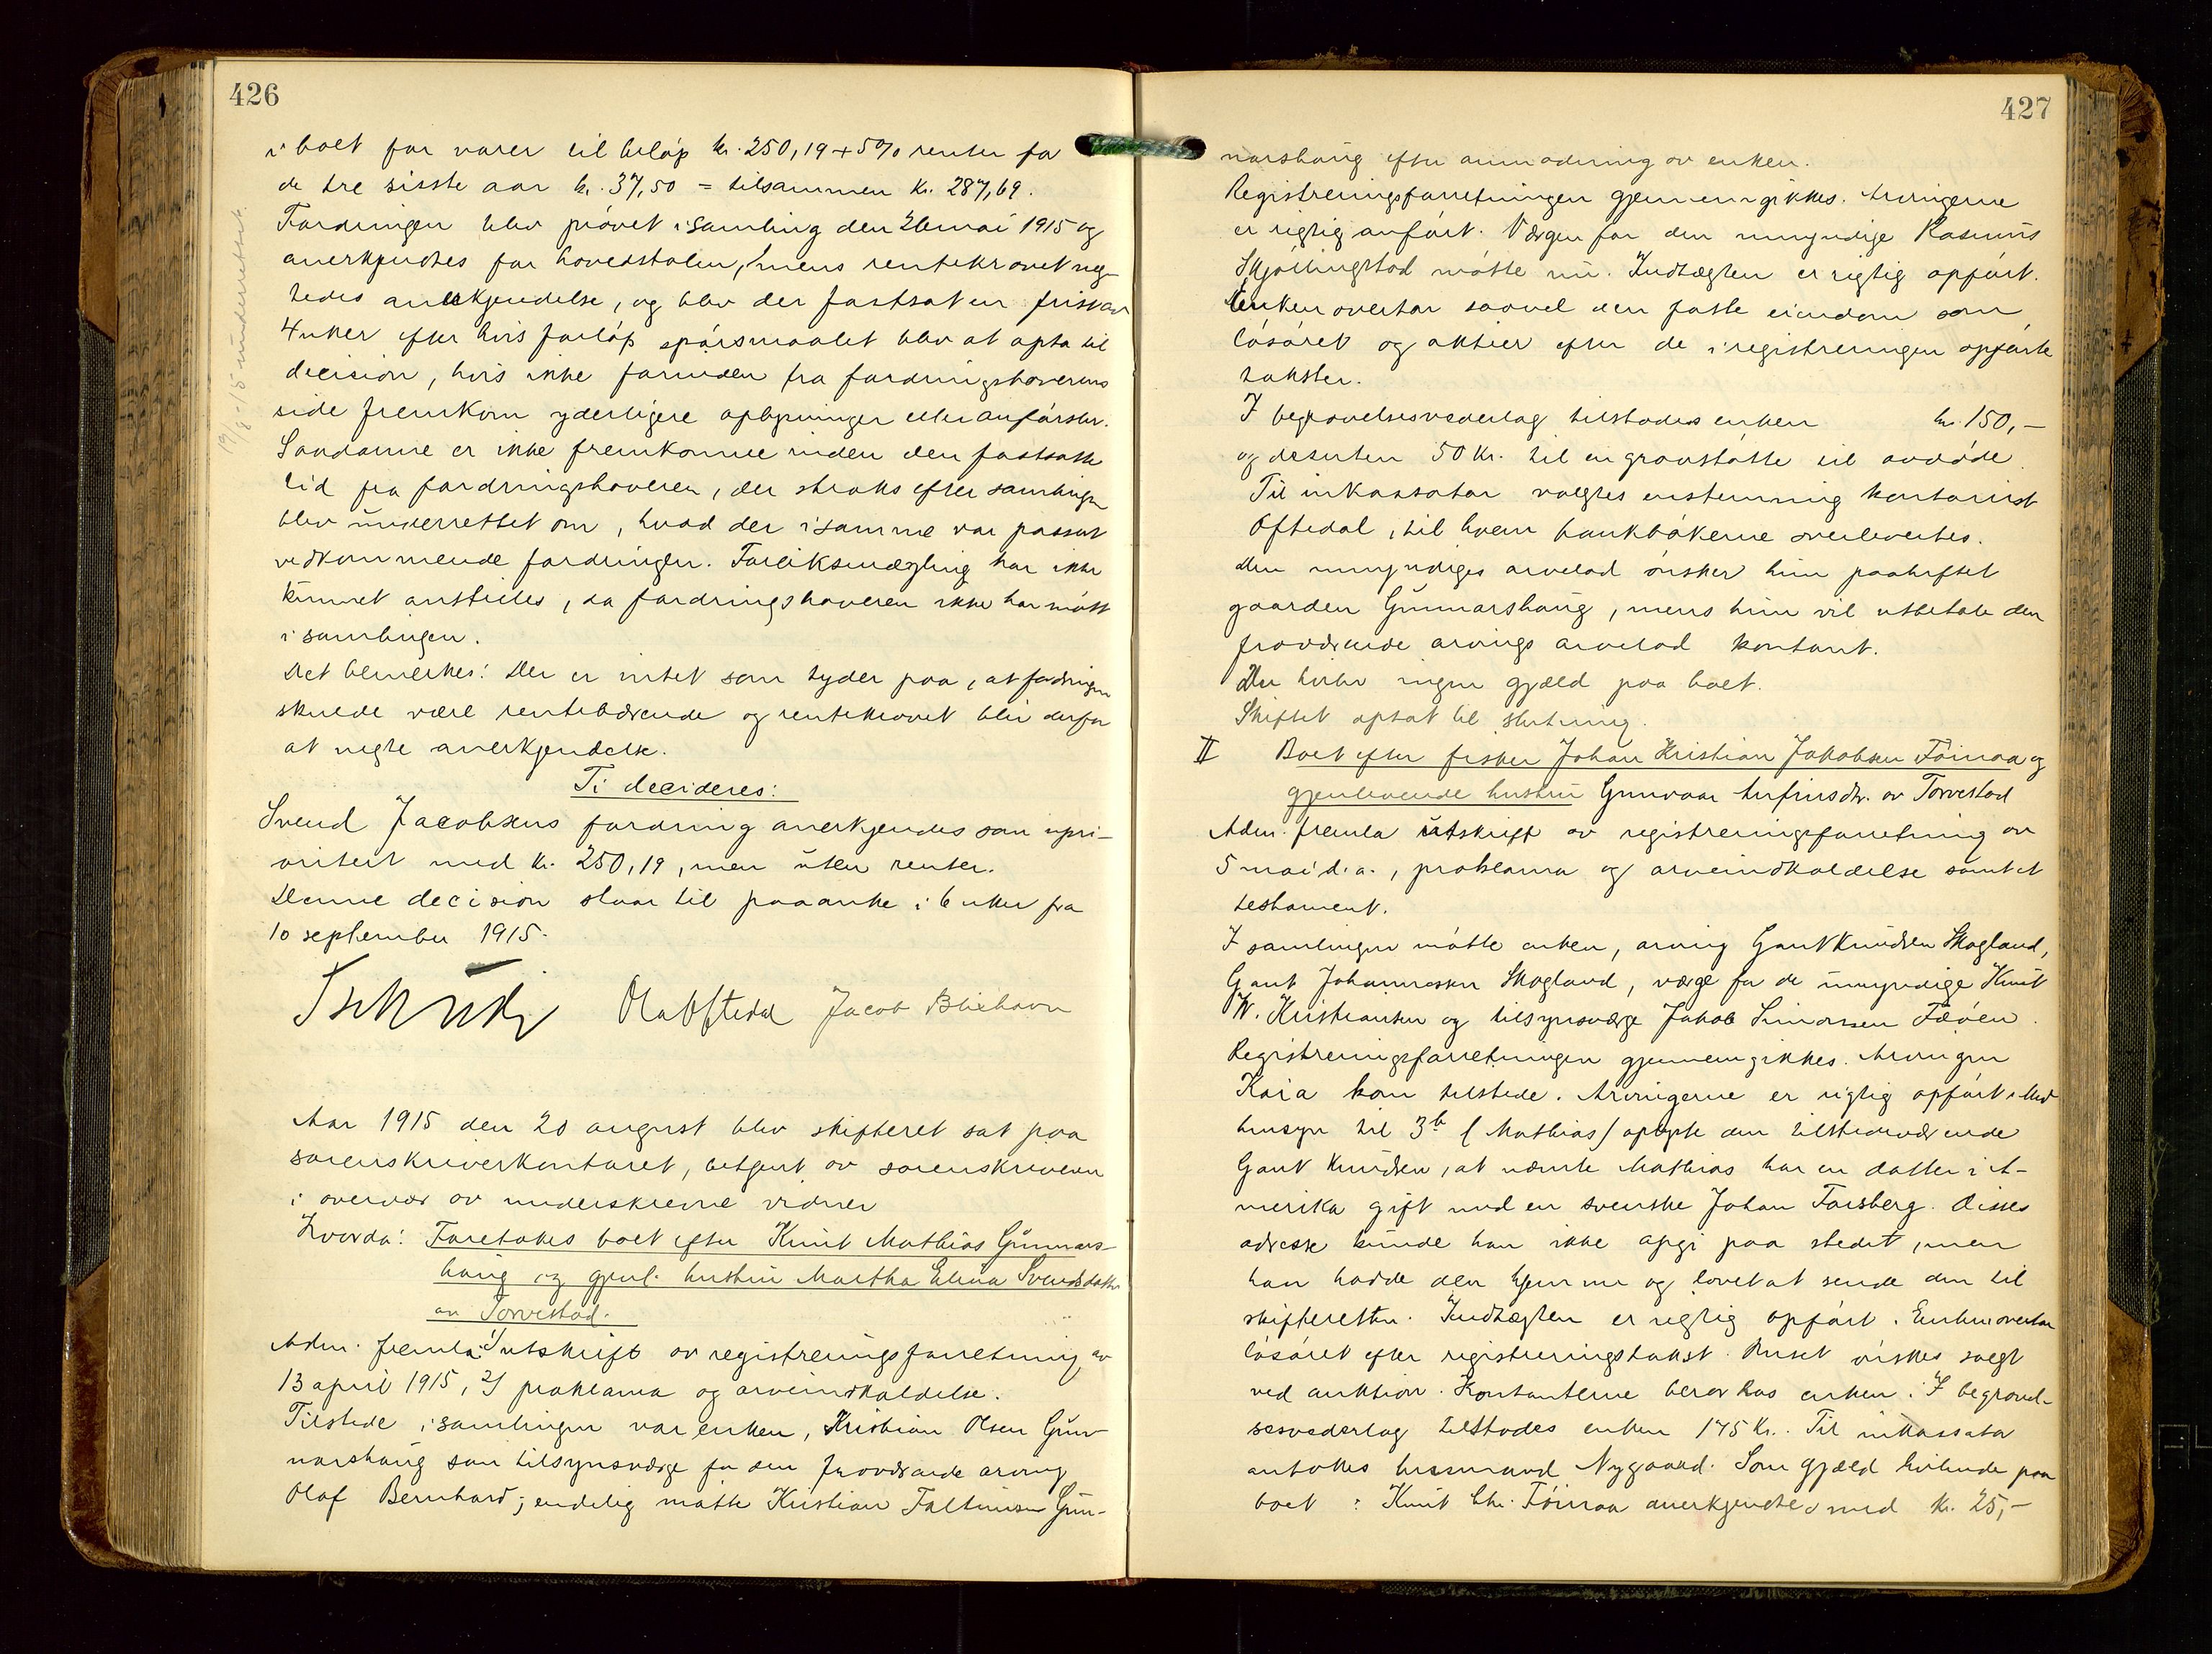 426
i boet for varer til beløp kr. 250,19 + 5% renter for
de tre sisste aar kr. 37,50 = tilsammen kr. 287,69.
Fordringen blev prøvet i samling den 26 mai 1915 og
anerkjendtes for hovedstolen, mens rentekravet neg-
tedes anerkjendelse, og blev der fastsat en frist av
4 uker efter hvis forløp spørsmaalet blev at opta til
decision, hvis ikke forinden fra fordringshaverens
side fremkom yderligere oplysninger eller anførsler.
Saadanne er ikke fremkomne inden den fastsatte
tid fra fordringshaveren, der straks efter samlingen
blev underrettet om, hvad der i samme var passert
vedkommende fordringen. Forliksmægling har ikke
kunnet anstilles, da fordringshaveren ikke har møtt
i samlingen.
Det bemerkes: Der er intet som tyder paa, at fordringen
skulde være rentebærende og rentekravet blir derfor
at negte anerkjendelse.
Ti decideres:
Svend Jacobsens fordring anerkjendes som upri-
oritert med kr. 250,19, men uten renter.
Denne decision staar til paaanke i 6 uker fra
10 september 1915.
Ola Oftedal Jacob Blixhavn
19/8-15 underrettet.
Aar 1915 den 20 august blev skifteret sat paa
sorenskriverkontoret, betjent av sorenskriveren
i overvær av underskrevne vidner
Hvorda: Foretokes boet efter Knut Mathias Gunnars-
haug og gjenl. hustru Martha Elena Svendsdatter
av Torvestad.
Adm. fremla: 1) utskrift av registreringsforretning av
13 april 1915, 2) proklama og arveindkaldelse.
Tilstede i samlingen var enken, Kristian Olsen Gun-
narshaug som tilsynsværge for den fraværende arving
Olaf Bernhard; endelig møtte Kristian Faltinsen Gun-
427
narshaug efter anmodning av enken.
Registreringsforretningen gjennemgikkes. Arvingerne
er rigtig anført. Værgen for den umyndige Rasmus
Skjøllingstad møtte nu. Indtægten er rigtig opført.
Enken overtar saavel den faste eiendom som
løsøret og aktier efter de i registreringen opførte
takster.
I begravelsesvederlag tilstodes enken kr. 150,-
og desuten 50 kr. til en gravstøtte til avdøde.
Til inkassator valgtes enstemmig kontorist
Oftedal, til hvem bankbøkerne overlevertes.
Den umyndiges arvelod ønsker hun paaheftet
gaarden Gunnarshaug, mens hun vil utbetale den
fraværende arvings arvelod kontant.
Der hviler ingen gjæld paa boet.
Skiftet optat til slutning.
II Boet efter fisker Johan Kristian Jakobsen Føinaa og
gjenlevende hustru Gunvaar Arfinsdtr. av Torvestad
Adm. fremla utskrift av registreringsforretning av
5 mai d.a., proklama og arveindkaldelse samt et
testament.
I samlingen møtte enken, arving Gaut Knudsen Skogland,
Gaut Johannessen Skogland, værge for de umyndige Knut
W. Kristiansen og tilsynsværge Jakob Simonsen Fæøen.
Registreringsforretningen gjennemgikkes. Arvingen
Kaia kom tilstede. Arvingerne er rigtig opført. Med
hensyn til 3b (Mathias) oplyste den tilstedeværende
Gaut Knudsen, at nævnte Mathias har en datter i A-
merika gift med en svenske Johan Forsberg. Disses
adresse kunde han ikke opgi paa stedet, men
han hadde den hjemme og lovet at sende den til
skifteretten. Indtægten er rigtig opført. Enken overtar
løsøret efter registreringstakst. Huset ønskes solgt
ved auktion. Kontanterne beror hos enken. I begravel-
sesvederlag tilstodes enken 175 kr. Til inkassator
antokes lensmand Nygaard. Som gjæld hvilende paa
boet: Knut Chr. Føinaa anerkjendtes med kr. 25,-